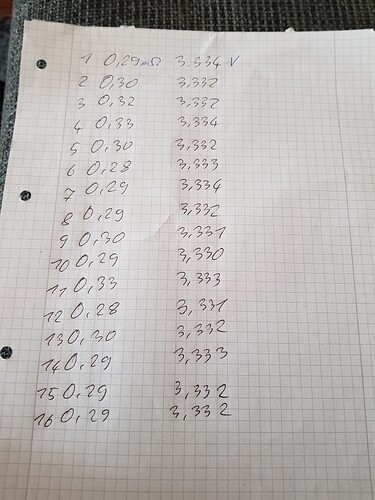 1 0,29mΩ 3.334 V
2 0,30 3,332
3 0,32 3,332
4 0,33 3,334
5 0,30 3,332
6 0,28 3,333
7 0,29 3,334
8 0,29 3,332
9 0,30 3,331
10 0,29 3,330
11 0,33 3,333
12 0,28 3,331
13 0,30 3,332
14 0,29 3,333
15 0,29 3,332
16 0,29 3,332